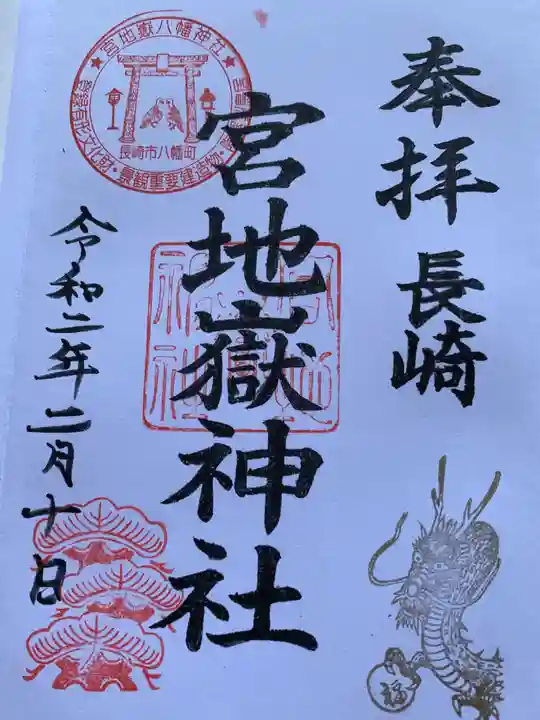 奉拝 長崎
宮地嶽神社
令和二年二月十日
宮地嶽八幡神社
長崎市八幡町
景観重要建造物
福